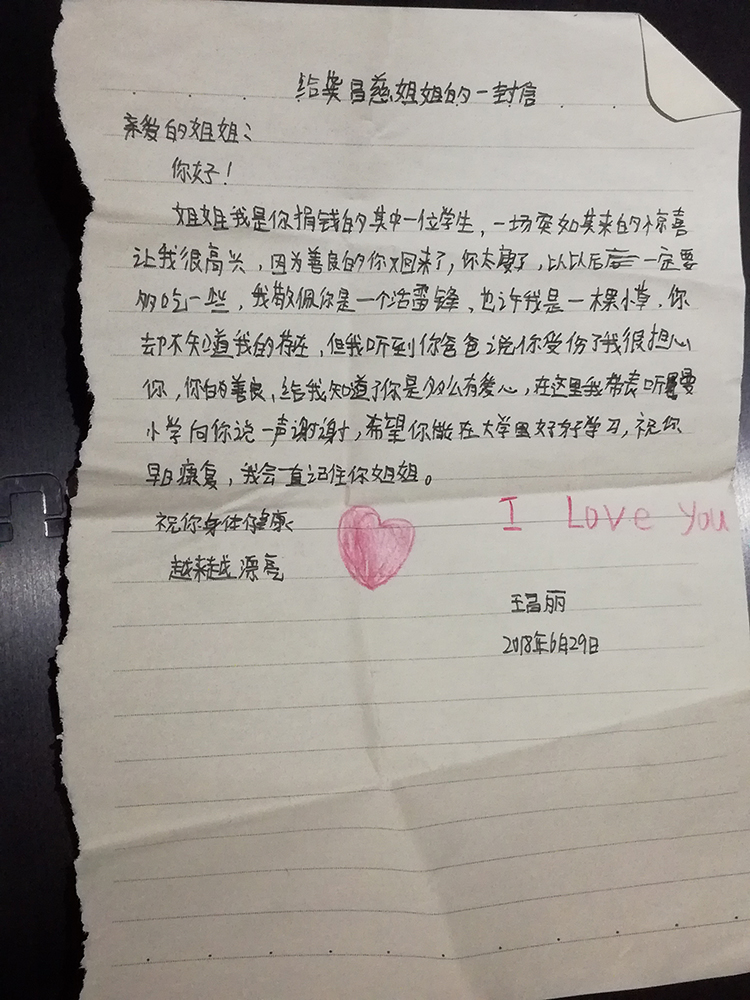 给龚昌慈姐姐的一封信
亲爱的姐姐：
你好！
姐姐我是你捐钱的其中一位学生，一场突如其来的惊喜
让我很高兴，因为善良的你又回来了，你太瘦了，以以后一定要
多吃一些，我敬佩你是一个活雷锋，也许我是一棵小草，你
却不知道我的存在，但我听到你爸爸说你受伤了我很担心
你，你的善良，给我知道了你是多么有爱心，在这里我带表
小学向你说一声谢谢，希望你能在大学里好好学习，祝你
早日康复，我会一直记住你姐姐。
祝你身体健康、
I Love You
越来越漂亮
王昌丽
2018年6月29日